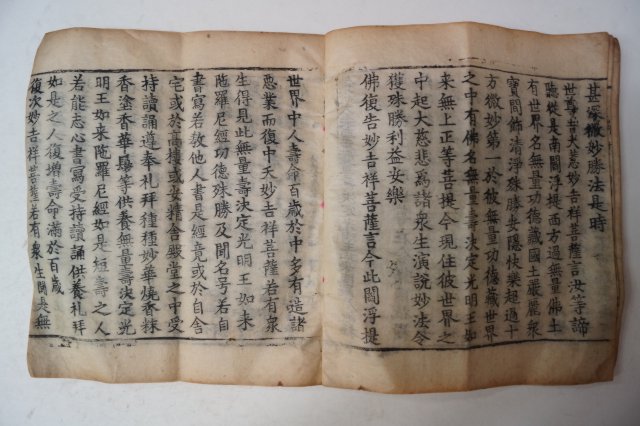 甚深微妙勝法是時
世尊告大慧妙吉祥菩薩言汝等諦
聽從是南閻浮提西方過無量佛土
有世界名無量功德藏國土嚴麗衆
寶間飾清淨殊勝安隱快樂超過十
方微妙第一於彼無量功德藏世界
之中有佛名無量壽決定光明王如
來無上正等菩提今現住彼世界之
中起大慈悲爲諸衆生演說妙法令
獲殊勝利益安樂
佛復告妙吉祥菩薩言今此閻浮提
世界中人壽命百歲於中多有造諸
惡業而復中夭妙吉祥菩薩若有衆
生得見此無量壽決定光明王如來
陁羅尼經功德殊勝及聞名号若自
書寫若敎他人書是經竟或於自舍
宅或於高樓或安精舍殿堂之中受
持讀誦遵奉礼拜種種妙華燒香粖
香塗香華鬘等供養無量壽決定光
明王如來陁羅尼經如是短壽之人
若能志心書寫受持讀誦供養礼拜
如是之人復增壽命滿於百歲
復次妙吉祥菩薩若有衆生聞是無